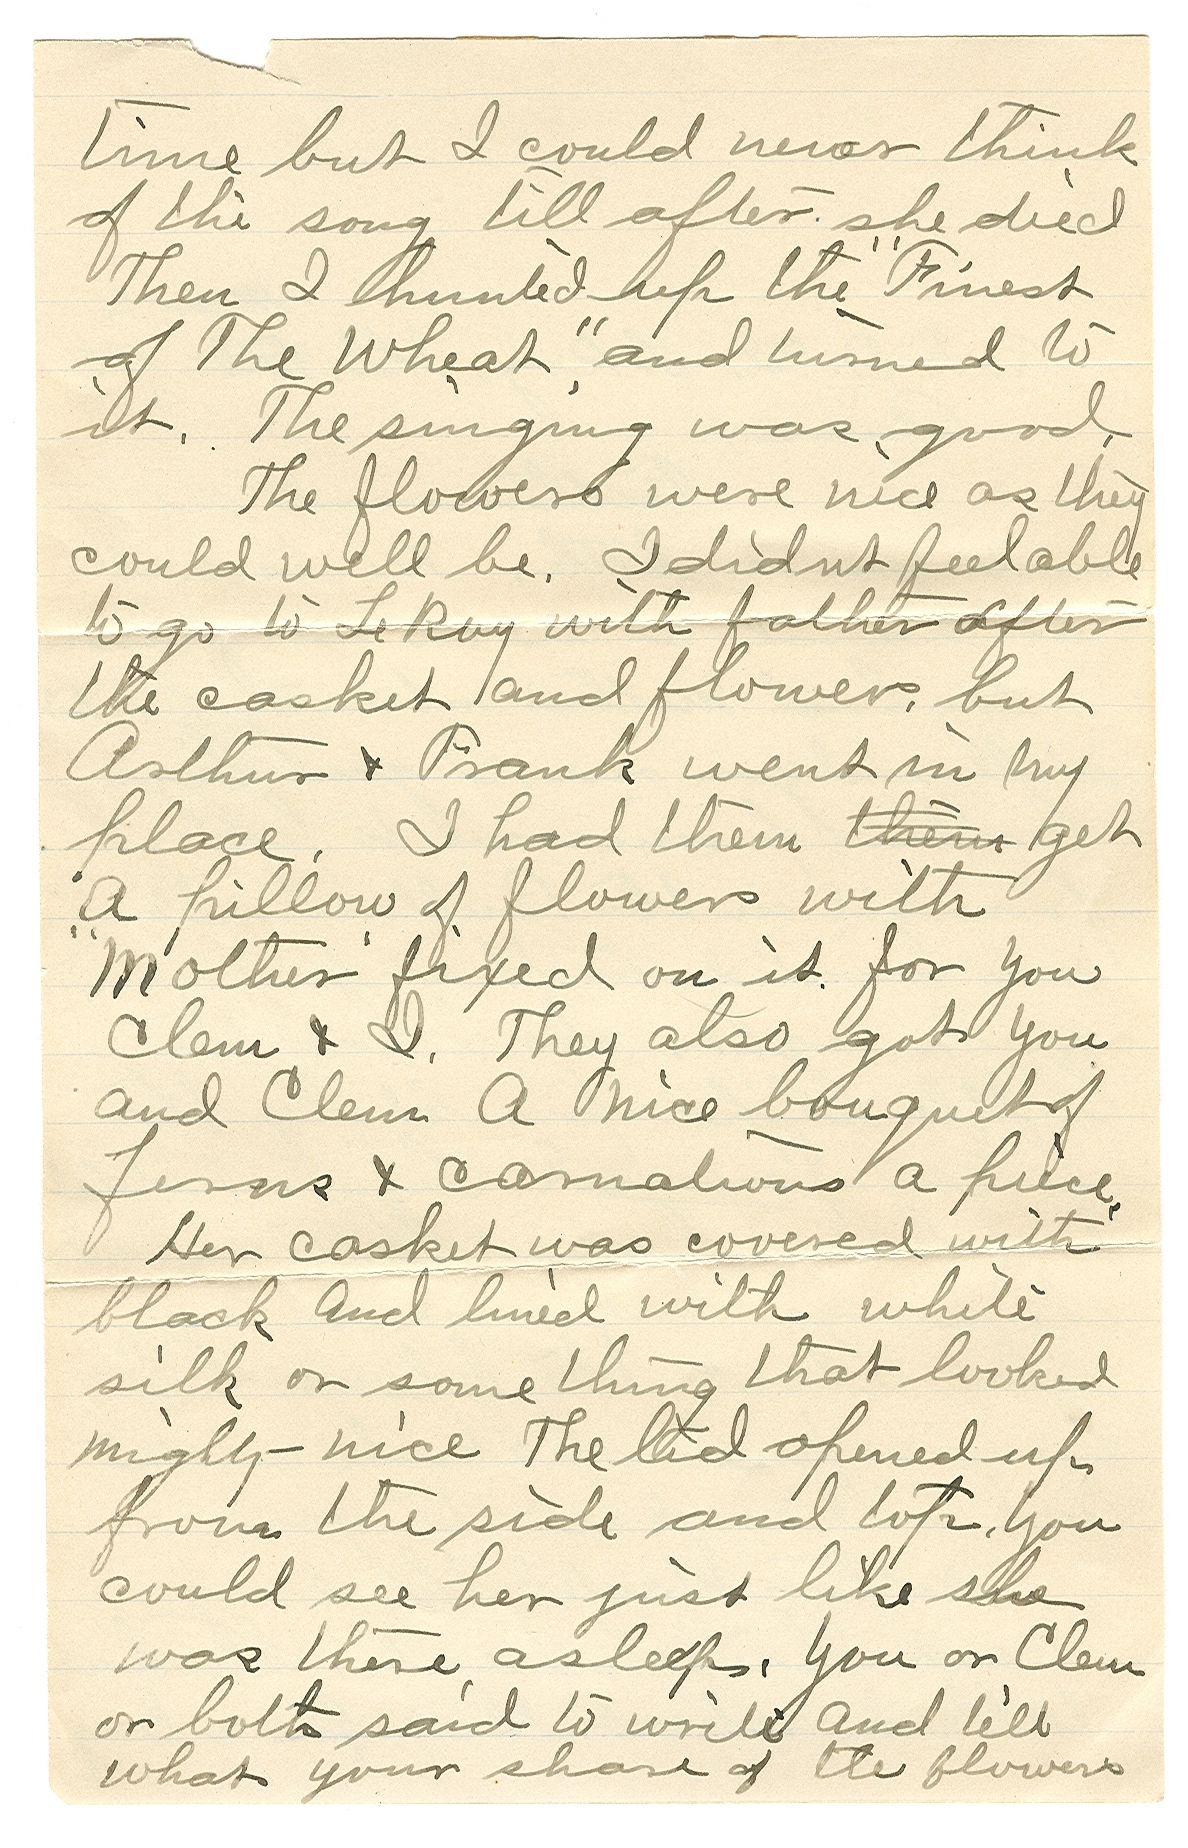 time but I could never think
of the song till after she died
Then I hunted up the "Finest
of The Wheat," and turned to
it. The singing was good.
The flowers were nice as they
could well be. I didnt feel able
to go to LeRoy with father after
the casket and flowers, but
Arthur & Frank went in my
place. I had them them get
A pillow of flowers with
"Mother" fixed on it. for you
Clem & I. They also got you
and Clem A nice bouquet of
Ferns & carnations a piece.
Her casket was covered with
black and lined with white
silk or some thing that looked
mighty nice The lid opened up
from the side and top. you
could see her just like she
was there asleep. you or Clem
or both said to write and tell
what your share of the flowers